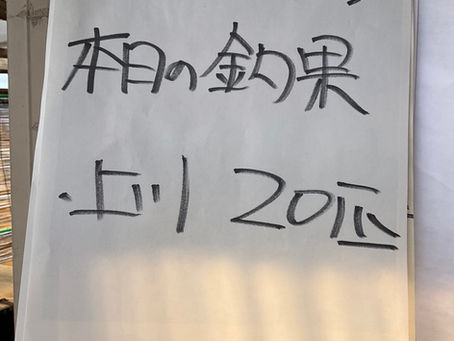 本日の釣果
・上川 20匹